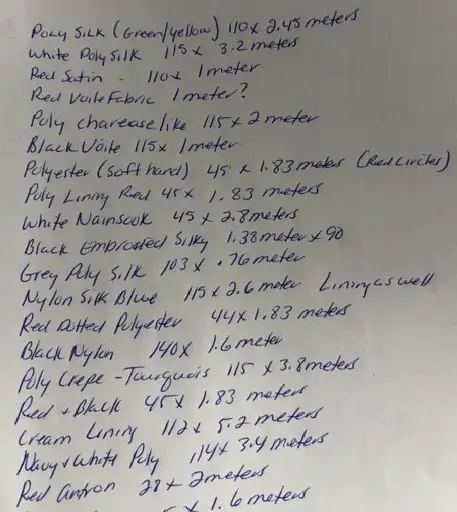 Poly Silk (Green/yellow) 110 x 2.45 meters
White Poly Silk 115 x 3.2 meters
Red Satin - 110 x 1 meter
Red Voile Fabric 1 meter?
Poly charease like 115 x 2 meter
Black Voile 115 x 1 meter.
Polyester (soft hand) 45 x 1.83 meters (Red Circles)
Poly Lining Red 45 x 1.83 meters
White Nainsook 45 x 2.8 meters
Black Embrosted Silky 1.38 meter x 90
Grey Poly Silk 103 x .76 meter
Nylon Silk Blue 115 x 2.6 meter Lining as well
Red Dotted Polyester 44 x 1.83 meters
Black Nylon 140 x 1.6 meter
Poly Crepe - Tourquois 115 x 3.8 meters
Red + Black 45 x 1.83 meters
Cream Lining 112 x 5.2 meters
Navy + White Poly 114 x 3.4 meters
Red Antron 28 x 2 meters
x 1.6 meters